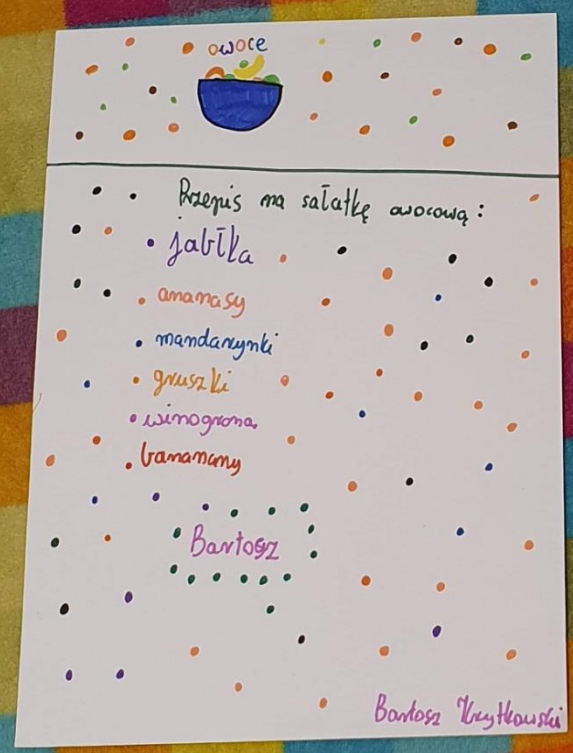 owoce
Przepis na sałatkę owocową:
• jabłka
• ananasy
• mandarynki
• gruszki
• winogrona
• bananany
Bartosz
Bartosz Krytkowski